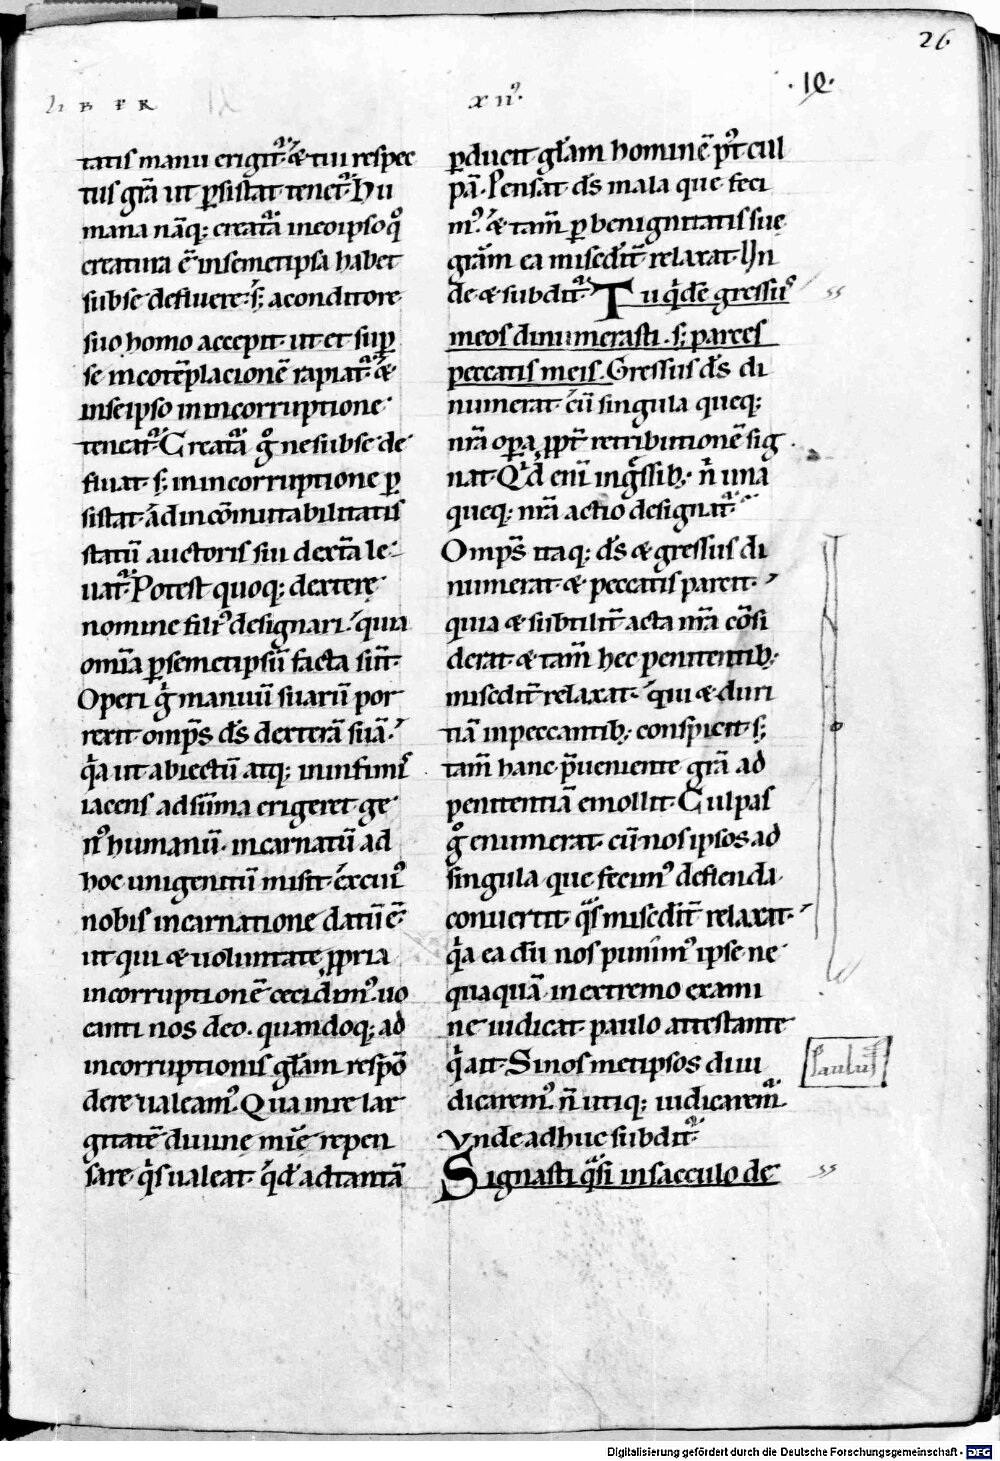 26
LIBER XII⁹.
·10·
tatis manu erigit᷒. ⁊ tui respec
tus gr̄a ut ꝑsistat tenet᷒. Hu
mana nāq; creat̄a in eo ipso qͦ
creatura ē in semetipsa habet
sub se defluere. s; a conditore
suo homo accepit ut et suꝑ
se in cōtēplacionē rapiat᷒. ⁊
in se ipso in incorruptione
teneat᷒. Creat̄a gͦ ne sub se de
fluat. s; in incorruptione ꝑ
sistat. ad incōmutabilitatis
statū auctoris sui dext̄a le
uat᷒. Potest quoq; dexterę
nomine fili⁹ designari. quia
omīa ꝑ semetipsū facta sūt.
Operi gͥ manuū suarū por
rexit omp̄s d̄s dexterā suā.
qͥa ut abiectū atq; in infimis
iacens ad sūma erigeret ge
n⁹ humanū. incarnatū ad
hoc unigenitū misit. ex cui⁹
nobis incarnatione datū ē.
ut qui ⁊ uoluntate ꝓpria
in corruptionē cecidim⁹. uo
canti nos deo. quandoq; ad
incorruptionis gl̄am respō
dere ualeam⁹. Qua in re lar
gitatē diuinę mīe repen
sare qͥs ualeat. qͥd ad tantā
ꝑducit gl̄am hominē p⁹t cul
pā. Pensat d̄s mala que feci
m⁹. ⁊ tam̄ ꝑ benignitatis suę
gr̄am ea misēdit̄ relaxat. Un
de ⁊ subdit᷒. Tu qͥdē gressus
meos dinumerasti. s; parces
peccatis meis. Gressus d̄s di
numerat. cū singula queq;
nr̄a oꝑa ꝓpt̄ retributionē sig
nat. Qͥd eni in gͥssib; nͥ una
queq; nr̄a actio designat᷒
Omp̄s itaq; d̄s ⁊ gressus di
numerat. ⁊ peccatis parcit.
quia ⁊ subtilit̄ acta nr̄a cōsi
derat. ⁊ tam̄ hec penitentib;
misēdit̄ relaxat. qui ⁊ duri
tiā in peccantib; conspicit. s;
tam̄ hanc p̄ueniente gr̄a ad
penitentiā emollit. Culpas
gͦ enumerat. cū nos ipsos ad
singula que fecim⁹ deflenda
conuertit. qͣs misēdit̄ relaxat.
qͥa ea dū nos punim⁹ ipse ne
quaquā in extremo exami
ne iudicat. paulo attestante
qͥ ait. Si nosmetipsos diiu
dicarem⁹. n̄ utiq; iudicarem᷒.
Paulus
Vnde adhuc subdit᷒.
Signasti qͣsi in sacculo de